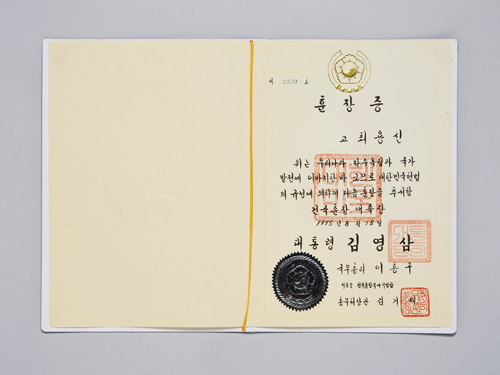 제 호
훈 장 증
고 최 용 신
위는 우리나라 자주독립과 국가
발전에 이바지한 바 크므로 대한민국헌법
의 규정에 의하여 다음 훈장을 수여함
건국훈장 애족장
1995 년 8 월 15 일
대통령 김 영 삼
국무총리 이 홍 구
총무처장관 김 기 재